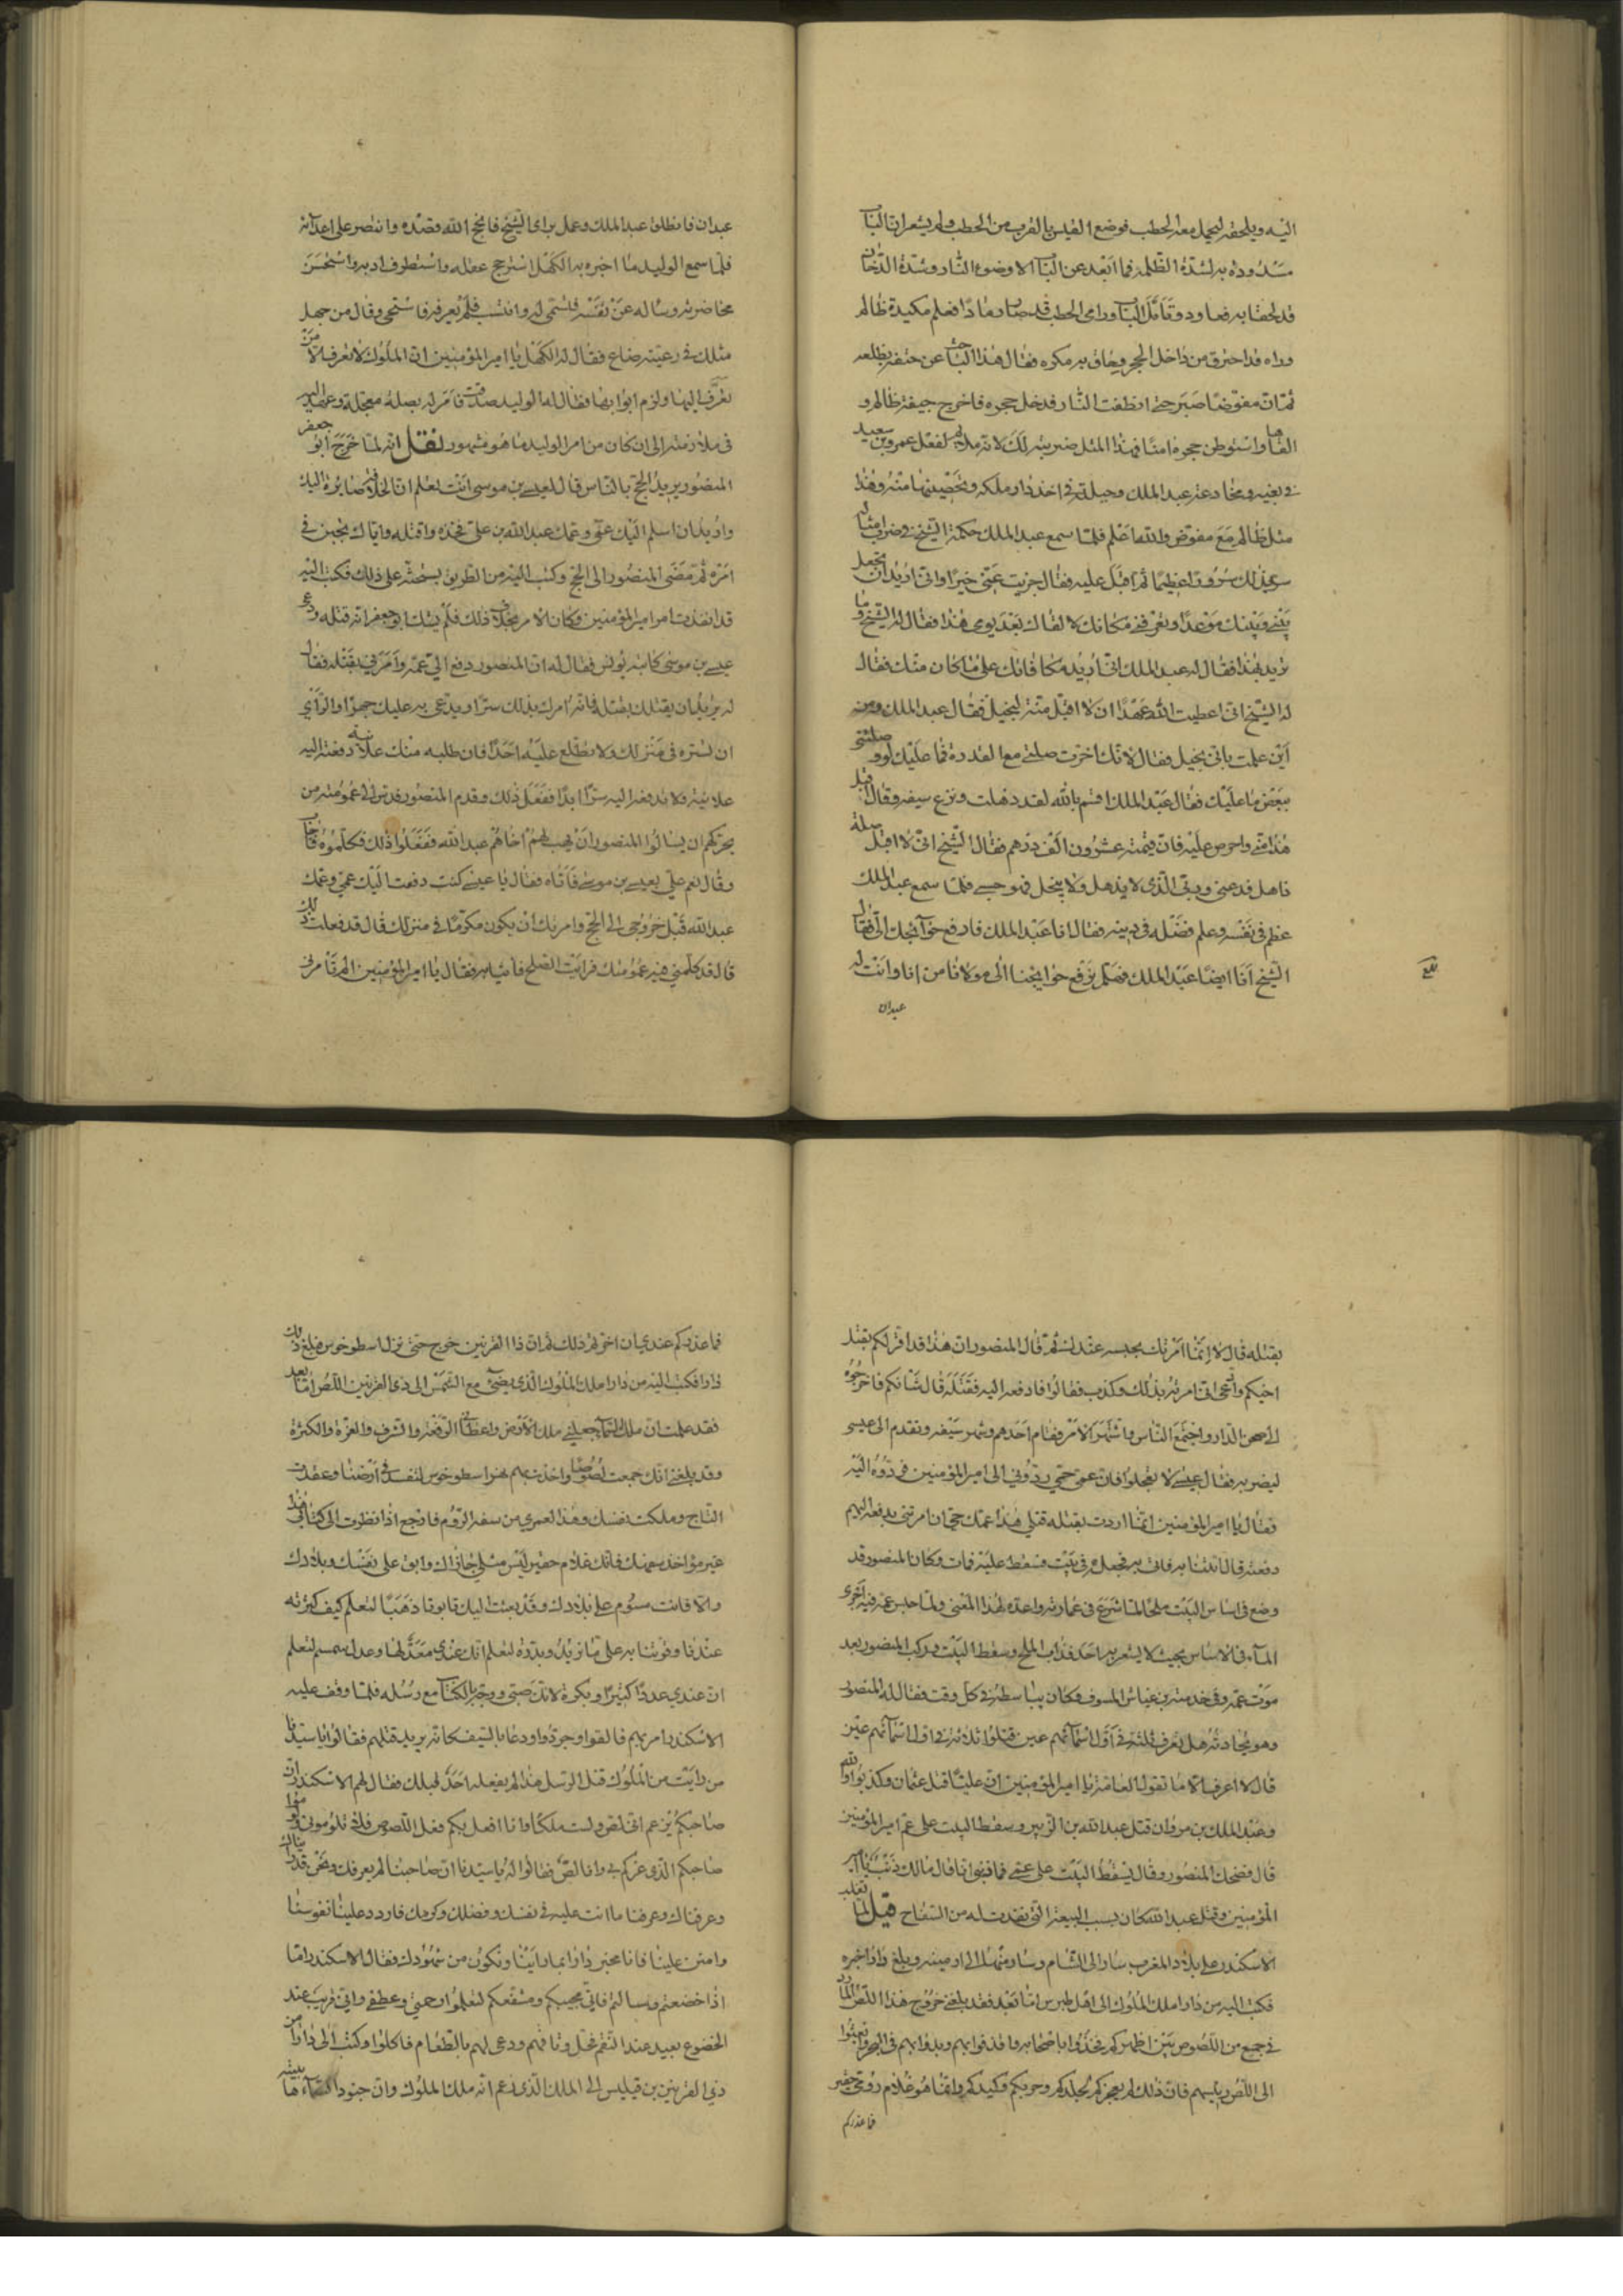 اليه ويلحقه ليحمل معه الحطب فوضع القبس بالقرب من الحطب ولم يشعر ان الباب
مسدودة به لشدة الظلمة فما ابعد عن الباب الا وضوء النار وشدة الدخان
قد لحقا به فعاود وتأمل الباب وراى الحطب قد صار نارا فعلم مكيدة ظالم
وراه قد احترق من داخل الحجر وحاق به مكره فقال هذا الباحث عن حتفه بظلفه
ثم ان مفوضا صبر حتى انطفت النار فدخل حجره فاخرج جيفة ظالم و
القاها واستوطن حجره امنا فهذا المثل ضربته لك لانه ملايم لفعل عمرو بن سعيد
في بغيه ومخادعته عبد الملك وحيلته في اخذ دار ملكه وتحصينها منه وهذا
مثل ظالم مع مفوض والله اعلم فلما سمع عبد الملك حكمة الشيخ في ضرب امثاله
سر بذلك سرورا عظيما ثم اقبل عليه فقال جزيت عني خيرا واني اريد ان تجعل
بيني وبينك موعدا وتعرفني مكانك لالقاك بعد يومي هذا فقال له الشيخ وما
تريد بهذا فقال له عبد الملك اني أريد مكافاتك على ما كان منك فقال
له الشيخ اني اعطيت الله عهدا ان لا اقبل منة لبخيل فقال عبد الملك ومن
أين علمت باني بخيل فقال لانك اخرت صلتي مع القدرة فما عليك لو وصلتني
ببعض ما عليك فقال عبد الملك اقسم بالله لقد ذهلت ونزع سيفه وقال اقبل
هذا مني واحرص عليه فان قيمته عشرون الف درهم فقال الشيخ اني لا اقبل صلة
ذاهل فدعني وربي الذي لا يذهل ولا يبخل فهو حسبي فلما سمع عبد الملك
عظم في نفسه وعلم فضله في دينه فقال انا عبد الملك فارفع حوائجك الى فقال
الشيخ أنا ايضا عبد الملك فهلم نرفع حوايجنا الى مولانا من انا وانت له
عبدان
بلغ
عبدان فانطلق عبد الملك وعمل براى الشيخ فانجح الله قصده وانتصر على اعدائه
فلما سمع الوليد ما اخبره به الكهل استرجح عقله واستظرف ادبه واستحسن
محاضرته وساله عن نفسه فتسمى له وانتسب فلم يعرفه فاستحى وقال من جهل
مثلك في رعيته ضاع فقال له الكهل يا امير المؤمنين ان الملوك لا تعرف الا من
تعرف اليها ولزم ابوابها فقال له الوليد صدقت فأمر له بصلة معجلة وعهد اليه
في ملازمته الى ان كان من امر الوليد ما هو مشهور نقل انه لما خرج أبو جعفر
المنصور يريد الحج بالناس قال لعيسى بن موسى أنت تعلم ان الخلافة صايرة اليك
واريد ان اسلم اليك عمي وعمك عبد الله بن علي فخذه واقتله واياك تجبن في
امره ثم مضى المنصور الى الحج وكتب اليه من الطريق يستحثه على ذلك فكتب اليه
قد انفذت امر امير المؤمنين وكان الامر بخلاف ذلك فلم يشك ابو جعفر انه قتله ودعى
عيسى بن موسى كاتبه يونس فقال له ان المنصور دفع الي عمه وأمرني بقتله فقال
له يريد ان يقتلك بقتله فانه امرك بذلك سرا ويدعي به عليك جهرا والرأي
ان تستره في منزلك ولا يطلع عليه احدا فان طلبه منك علانية دفعته اليه
علانية ولا تدفعه اليه سرا ابدا ففعل ذلك وقدم المنصور فدس الى عمومته من
يحركهم ان يسالوا المنصور ان يهب لهم اخاهم عبد الله ففعلوا ذلك فكلموه فاجاب
وقال نعم علي بعيسى بن موسى فأتاه فقال يا عيسى كنت دفعت اليك عمي وعمك
عبد الله قبل خروجي الى الحج وامرتك أن يكون مكرما في منزلك قال قد فعلت ذلك
قال قد كلمني فيه عمومتك فرايت الصلح فاتنا به فقال يا امير المؤمنين الم تأمرني
بقتله قال لا إنما امرتك بحبسه عندك ثم قال المنصور ان هذا قد اقر لكم بقتل
اخيكم وادعى اني امرته بذلك وكذب فقالوا فادفعه اليه فنقتله قال شانكم فاخرجوه
الى صحن الدار واجتمع الناس واشتهر الامر وقام احدهم وشهر سيفه وتقدم الى عيسى
ليضربه فقال عيسى لا تعجلوا فان عمي حي ردوني الى امير المؤمنين فردوه اليه
فقال يا امير المؤمنين انما اردت بقتله قتلي هذا عمك حي ان امرتني بدفعه اليهم
دفعته قال ائتنا به فاتى به فجعله في بيت فسقط عليه فمات وكان المنصور قد
وضع في اساس البيت ملحا لما شرع في عمارته واعده لهذا المعنى ولما حبس عمه فيه أجرى
الماء في الاساس بحيث لا يشعر به احد فذاب الملح وسقط البيت وركب المنصور بعد
موت عمه وفي خدمته بن عياش المسوف وكان يباسطه في كل وقت فقال له المنصور
وهو يحادثه هل تعرف ثلثة في أول أسمائهم عين قتلوا ثلاثة في اول أسمائهم عين
قال لا اعرف الا ما تقول العامة يا امير المؤمنين ان عليا قتل عثمان وكذبوا والله
وعبد الملك بن مروان قتل عبد الله بن الزبير وسقط البيت على عم امير المؤمنين
قال فضحك المنصور وقال يسقط البيت على عمي فما ذنبي انا قال مالك ذنب يا امير
المؤمنين وقتل عبد الله كان بسبب البيعة التي تقدمت له من السفاح قيل لما تغلب
الاسكندر على بلاد المغرب سار الى الشام وسار منها الى ارمينيه وبلغ دارا خبره
فكتب اليه من دارا ملك الملوك الى اهل طبرس اما بعد فقد بلغني خروج هذا اللص المارد
في جمع من اللصوص بين اظهركم فخذوا باصحابه واقذفوا بهم وبدوابهم في البحر وابعثوا
الى اللص رئيسهم فان ذلك لم يعجزكم لجلدكم وحربكم وكيدكم وانما هو غلام رومي حقير
فما عذركم
فما عذركم عندي ان اخرتم ذلك ثم ان ذا القرنين خرج حتى نزل اسطوخوس فبلغ ذلك
دارا فكتب اليه من دارا ملك الملوك الذي يضئ مع الشمس الى ذي القرنين اللص اما بعد
فقد علمت ان ملك السماء جعلني ملك الارض واعطانى الرفعة والشرف والعزة والكثرة
وقد بلغني انك جمعت لصوصا واخذت بهم نهر اسطوخوس لتفسد في أرضنا وعقدت
التاج وملكت نفسك وهذا لعمري من سفه الروم فارجع اذا نظرت الى كتابي هذا
غير مؤاخذ بسفهك فانك غلام حقير ليس مثلي جازاك وابق على نفسك وبلادك
والا فانت مسؤم على بلادك وقد بعثت اليك تابوتا ذهبا لتعلم كيف كثرته
عندنا وقوتنا به على ما نريد وبدرة لتعلم انك عندي معدلها وعدل سمسم لتعلم
ان عندي عددا كبيرا وبكرة لانك صبي وجهز بالكتاب مع رسله فلما وقف عليه
الاسكندر امر بهم فالقوا وجردوا ودعا بالسيف كانه يريد قتلهم فقالوا يا سيدنا
من رايت من الملوك قتل الرسل هذا لم يفعله احد قبلك فقال لهم الاسكندر ان
صاحبكم يزعم اني لص ولست ملكا وانا افعل بكم فعل اللصوص فلا تلوموني ولوموا
صاحبكم الذي غركم بي وانا لص فقالوا له يا سيدنا ان صاحبنا لم يعرفك ونحن قد رايناك
وعرفناك وعرفنا ما انت عليه في نفسك وفضلك وكرمك فاردد علينا نفوسنا
وامنن علينا فانا مخبر دارا بما راينا ونكون من شهودك فقال الاسكندر اما
اذا خضعتم وسالتم فاني مجيبكم ومشفعكم لتعلموا رحمتي وعطفي واني قريب عند
الخضوع بعيد عند التغير فحل وثاقهم ودعى لهم بالطعام فاكلوا وكتب الى دارا من
ذي القرنين بن قيليس الى الملك الذي زعم انه ملك الملوك وان جنود السماء هايبته